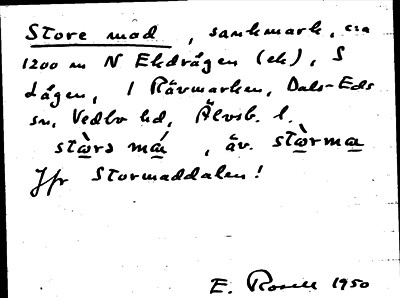 Store mad, sankmark, c:a
1200 m N Ekdrågen (ek), S
Lågen, i Rävmarken, Dals-Eds
sn, Vedbo hd, Älvsb. l.
stɷ̀rə má, äv. stɷ̀rma
Jfr Stormaddalen!
E. Rosell 1950